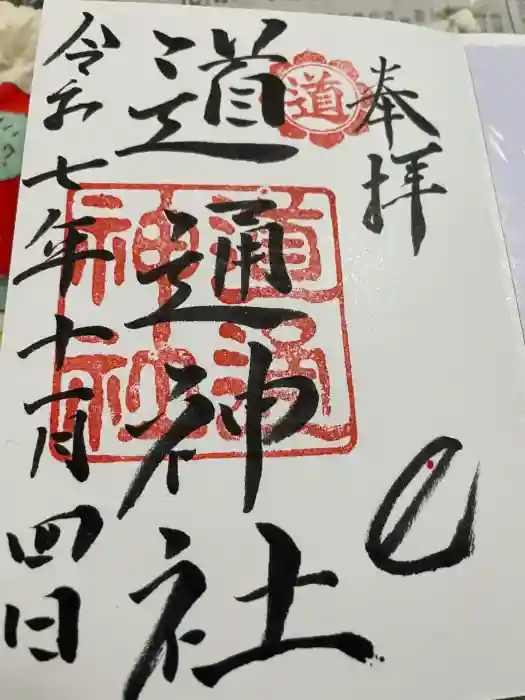 奉拝
道
道通神社
道通神社
令和七年十一月四日